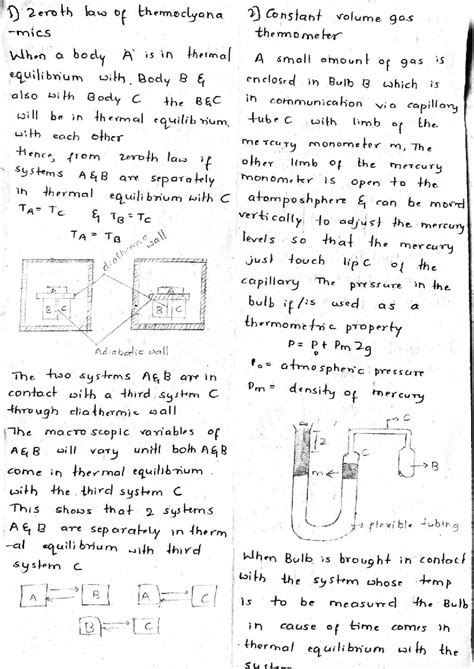 1) Zeroth law of thermodyana
-mics
When a body A is in thermal
equilibrium with Body B &
also with Body C the B&C
will be in thermal equilibrium
with each other
Hence, from zeroth law if
systems A&B are separately
in thermal equilibrium with C
TA = TC & TB = TC
TA = TB
diathermic wall
A
B
C
A
B
C
Adiabatic wall
The two systems A&B are in
contact with a third system C
through diathermic wall
The macroscopic variables of
A&B will vary until both A&B
come in thermal equilibrium
with the third system C
This shows that 2 systems
A&B are separately in therm
-al equilibrium with third
system C
A B A C
B C
2) Constant volume gas
thermometer
A small amount of gas is
enclosed in Bulb B which is
in communication via capillary
tube C with limb of the
mercury monometer m, The
other limb of the mercury
monometer is open to the
atomposhphere & can be movd
vertically to adjust the mercury
levels so that the mercury
just touch lip C of the
capillary The pressure in the
bulb if/is used as a
thermometric property
P = P0 + Pm2g
P0 = atmospheric pressure
Pm = density of mercury
C
2
C
m
B
flexible tubing
When Bulb is brought in contact
with the system whose temp
is to be measurrd the Bulb
in cause of time comes in
thermal equilibrium with the
system